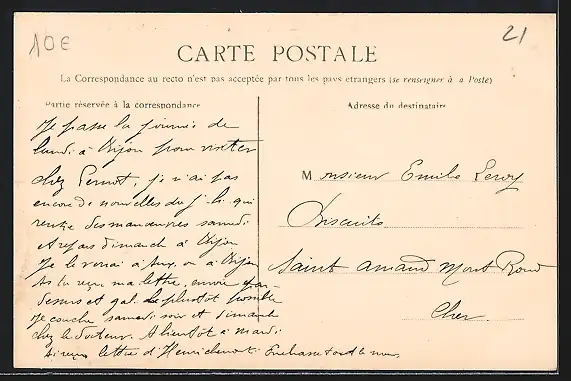 10€
21
CARTE POSTALE
La Correspondance au recto n'est pas acceptée par tous les pays etrangers (se renseigner à la Poste)
Partie réservée à la correspondance
Adresse du destinataire
Je passe la journée de
lundi à Dijon pour visiter
chez Pernot, je n'ai pas
encore de nouvelles du j. h. qui
rentre des manœuvres samedi
et repars dimanche à Dijon
Je le verrai à ou à Dijon
As tu reçu ma lettre, envoie
et gal. le plus tôt possible
Je couche samedi soir et dimanche
chez le docteur. A bientôt à mardi.
lettre d'Henrichemont. Embrasse tout le
Monsieur Emile Leroy
Biscuits
Saint Amand Mont Rond
Cher.